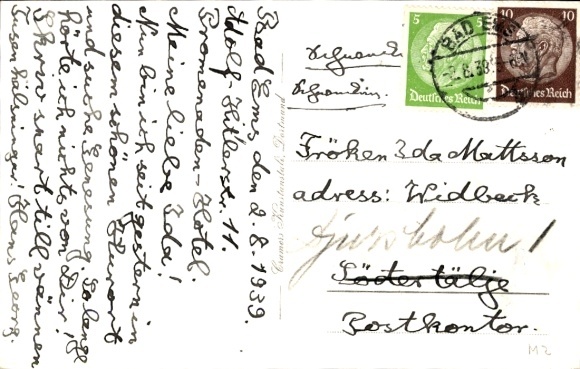 Bad Ems den 2.8.1939.
Adolf-Hitlerstr. 11.
Promenaden-Hotel.
Meine liebe Ida!
Nun bin ich seit gestern in
diesem schönen Kurort
und suche Genesung. Solange
hörte ich nichts von Dir!
Skriv snart till vännen
Tusen hälsningar! Hans Georg.
Cramers Kunstanstalt, Dortmund
5
Deutsches Reich
10
Deutsches Reich
BAD EMS
Fröken Ida Mattsson
adress: Widbeck
Djursholm 1
Södertälje
Postkontor.
M2